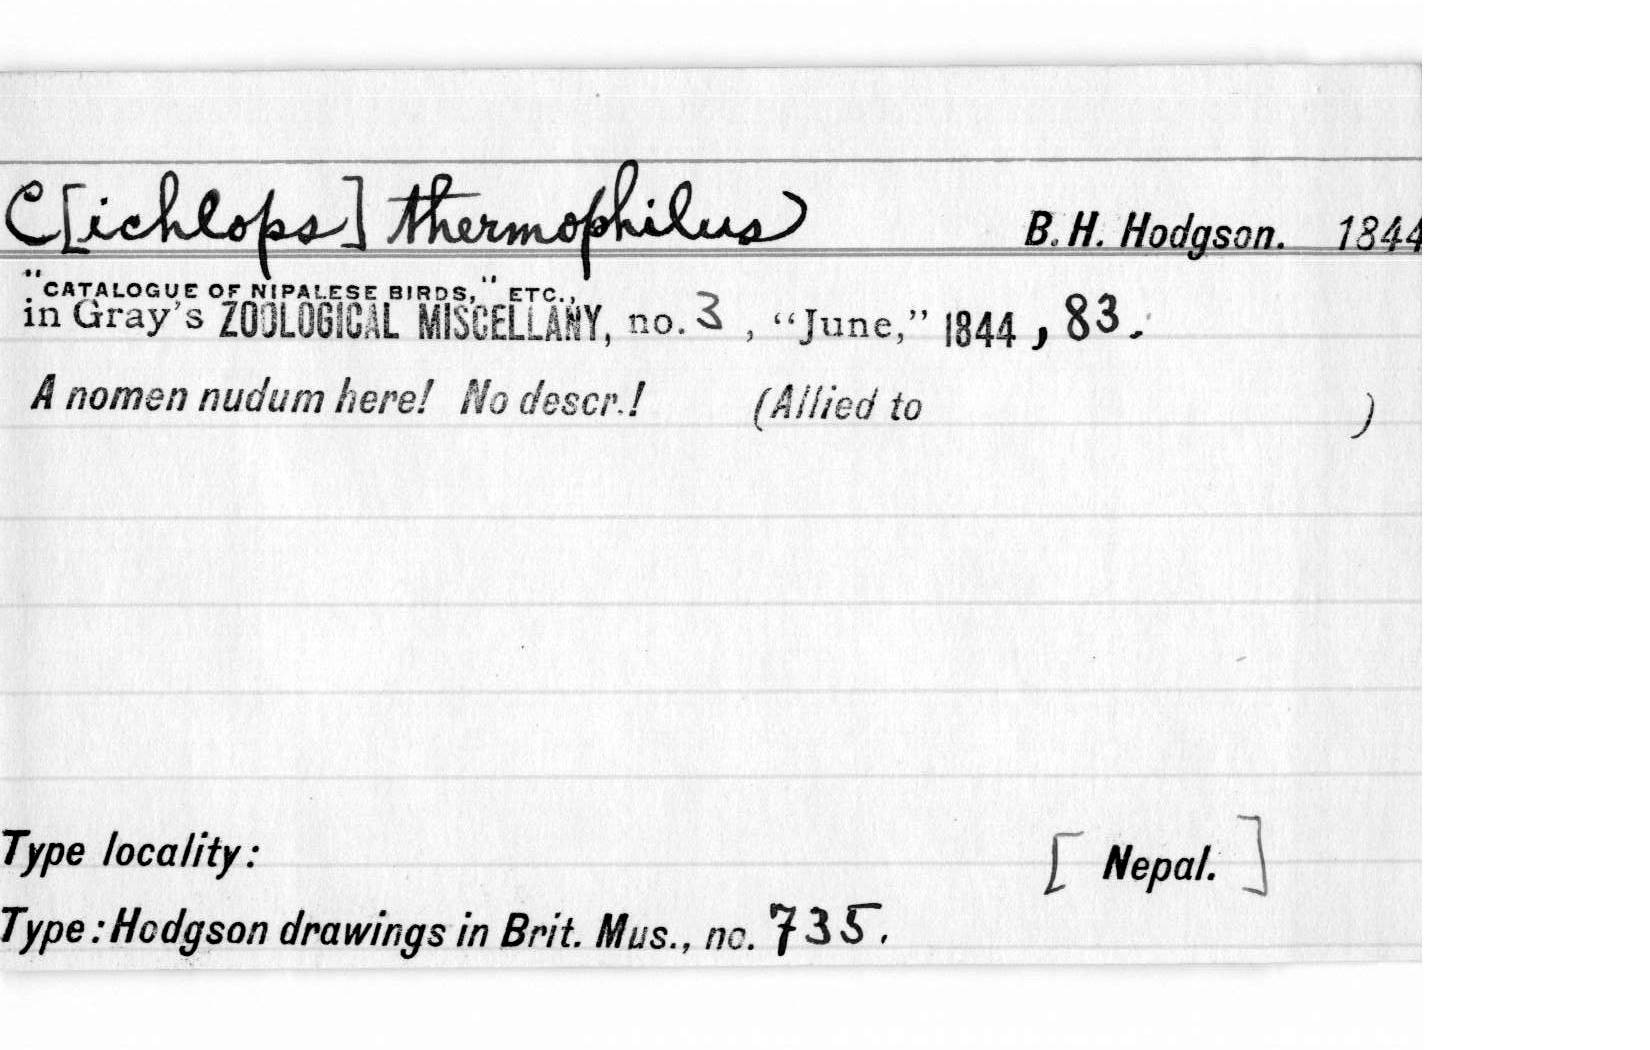 C[ichlops] thermophilus B. H. Hodgson. 1844
"CATALOGUE OF NIPALESE BIRDS," ETC.,
in Gray's ZOOLOGICAL MISCELLANY, no. 3, "June," 1844, 83.
A nomen nudum here! No descr.! (Allied to )
Type locality: [Nepal.]
Type: Hodgson drawings in Brit. Mus., no. 735.